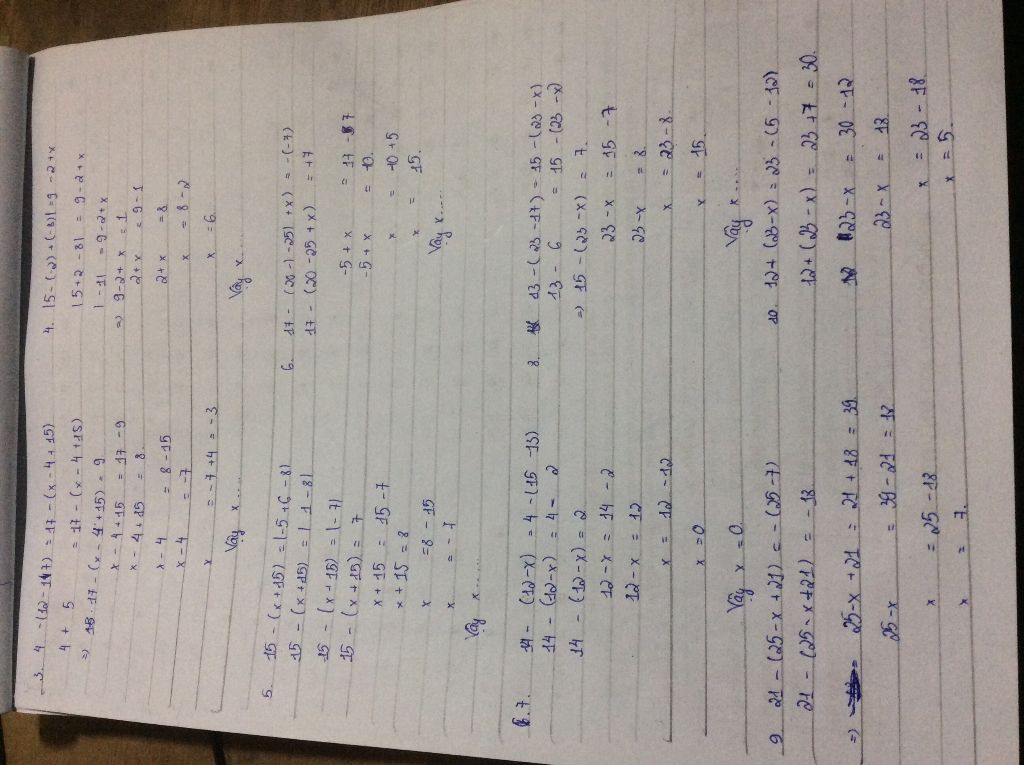 3. 4 - (12 - 17) = 17 - (x - 4 + 15)
4 + 5 = 17 - (x - 4 + 15)
=> 17 - (x - 4 + 15) = 9
x - 4 + 15 = 17 - 9
x - 4 + 15 = 8.
x - 4 = 8 - 15
x - 4 = -7
x = -7 + 4 = -3
Vậy x.....
4. |5 - (-2) + (-8)| = 9 - 2 + x
|5 + 2 - 8| = 9 - 2 + x
|-1| = 9 - 2 + x
=> 9 - 2 + x = 1
2 + x = 9 - 1
2 + x = 8
x = 8 - 2
x = 6.
Vậy x.....
5. 15 - (x + 15) = |-5 + 6 - 8|
15 - (x + 15) = |1 - 8|
15 - (x + 15) = |-7|
15 - (x + 15) = 7
x + 15 = 15 - 7
x + 15 = 8
x = 8 - 15
x = -7
Vậy x......
6. 17 - (20 - |-25| + x) = -(-7)
17 - (20 - 25 + x) = +7
-5 + x = 17 - 7
-5 + x = 10.
x = 10 + 5
x = 15.
Vậy x.....
7. 14 - (12 - x) = 4 - (15 - 13)
14 - (12 - x) = 4 - 2
14 - (12 - x) = 2
12 - x = 14 - 2
12 - x = 12
x = 12 - 12
x = 0
Vậy x = 0.
8. 13 - (23 - 17) = 15 - (23 - x)
13 - 6 = 15 - (23 - x)
=> 15 - (23 - x) = 7.
23 - x = 15 - 7
23 - x = 8
x = 23 - 8.
x = 15.
Vậy x.....
9 21 - (25 - x + 21) = -(25 - 7)
21 - (25 - x + 21) = -18
=> 25 - x + 21 = 21 + 18 = 39
25 - x = 39 - 21 = 18
x = 25 - 18
x = 7.
10. 12 + (23 - x) = 23 - (5 - 12)
12 + (23 - x) = 23 + 7 = 30.
23 - x = 30 - 12
23 - x = 18
x = 23 - 18
x = 5.